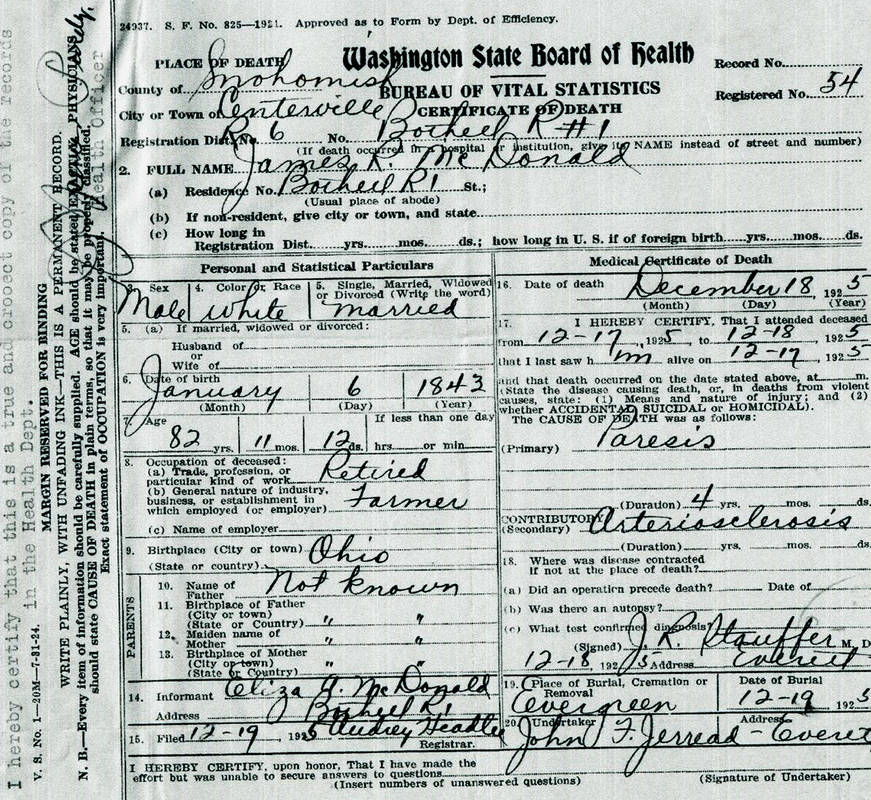 24937. S. F. No. 825—1921. Approved as to Form by Dept. of Efficiency.
PLACE OF DEATH
Washington State Board of Health
Record No.
County of Snohomish
BUREAU OF VITAL STATISTICS
Registered No. 54
City or Town of Centersville
CERTIFICATE OF DEATH
Registration Dist. No. R 6 No. Bothell R #1
(If death occurred in hospital or institution, give its NAME instead of street and number)
2. FULL NAME James R. McDonald
(a) Residence No. Bothell R1 St.;
(Usual place of abode)
(b) If non-resident, give city or town, and state
(c) How long in
Registration Dist. yrs. mos. ds.; how long in U. S. if of foreign birth yrs. mos. ds.
Personal and Statistical Particulars
3. Sex 4. Color or Race 5. Single, Married, Widowed
or Divorced (Write the word)
Male White Married
5. (a) If married, widowed or divorced:
Husband of
or
Wife of
6. Date of birth
January 6 1843
(Month) (Day) (Year)
7. Age If less than one day
82 yrs. 11 mos. 12 ds. hrs. or min.
8. Occupation of deceased:
(a) Trade, profession, or
particular kind of work Retired
(b) General nature of industry,
business, or establishment in
which employed (or employer) Farmer
(c) Name of employer
9. Birthplace (City or town) Ohio
(State or country)
PARENTS
10. Name of
Father Not known
11. Birthplace of Father
(City or town)
(State or Country) " "
12. Maiden name of
Mother " "
13. Birthplace of Mother
(City or town) " "
(State or Country)
14. Informant Eliza A. McDonald
Address Bothell R1
15. Filed 12-19, 1925 Audrey Headlee
Registrar.
Medical Certificate of Death
16. Date of death December 18, 1925
(Month) (Day) (Year)
17. I HEREBY CERTIFY, That I attended deceased
from 12-17, 1925, to 12-18, 1925
that I last saw him alive on 12-17, 1925
and that death occurred on the date stated above, at m.
(State the disease causing death, or, in deaths from violent
causes, state: (1) Means and nature of injury; and (2)
whether ACCIDENTAL SUICIDAL or HOMICIDAL).
The CAUSE OF DEATH was as follows:
(Primary) Paresis
(Duration) 4 yrs. mos. ds.
CONTRIBUTORY Arteriosclerosis
(Secondary)
(Duration) yrs. mos. ds.
18. Where was disease contracted
If not at the place of death?
(a) Did an operation precede death? Date of
(b) Was there an autopsy?
(c) What test confirmed diagnosis?
(Signed) J. R. Stauffer M. D.
12-18, 1925 Address Everett
19. Place of Burial, Cremation or
Removal
Date of Burial
Evergreen 12-19 1925
20. Undertaker Address
John F. Jerread - Everett
I HEREBY CERTIFY, upon honor, That I have made the
effort but was unable to secure answers to questions
(Insert numbers of unanswered questions) (Signature of Undertaker)
I hereby certify that this is a true and crooect copy of the records
in the Health Dept.
Health Officer
V. S. No. 1—20M—7-31-24.
MARGIN RESERVED FOR BINDING
WRITE PLAINLY, WITH UNFADING INK—THIS IS A PERMANENT RECORD.
N. B.—Every item of information should be carefully supplied. AGE should be stated EXACTLY. PHYSICIANS
should state CAUSE OF DEATH in plain terms, so that it may be properly classified.
Exact statement of OCCUPATION is very important.